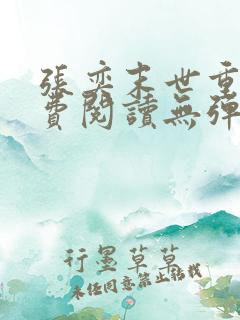 張奕末世重
費閱讀無彈
行墨草草
未经同意禁止转载